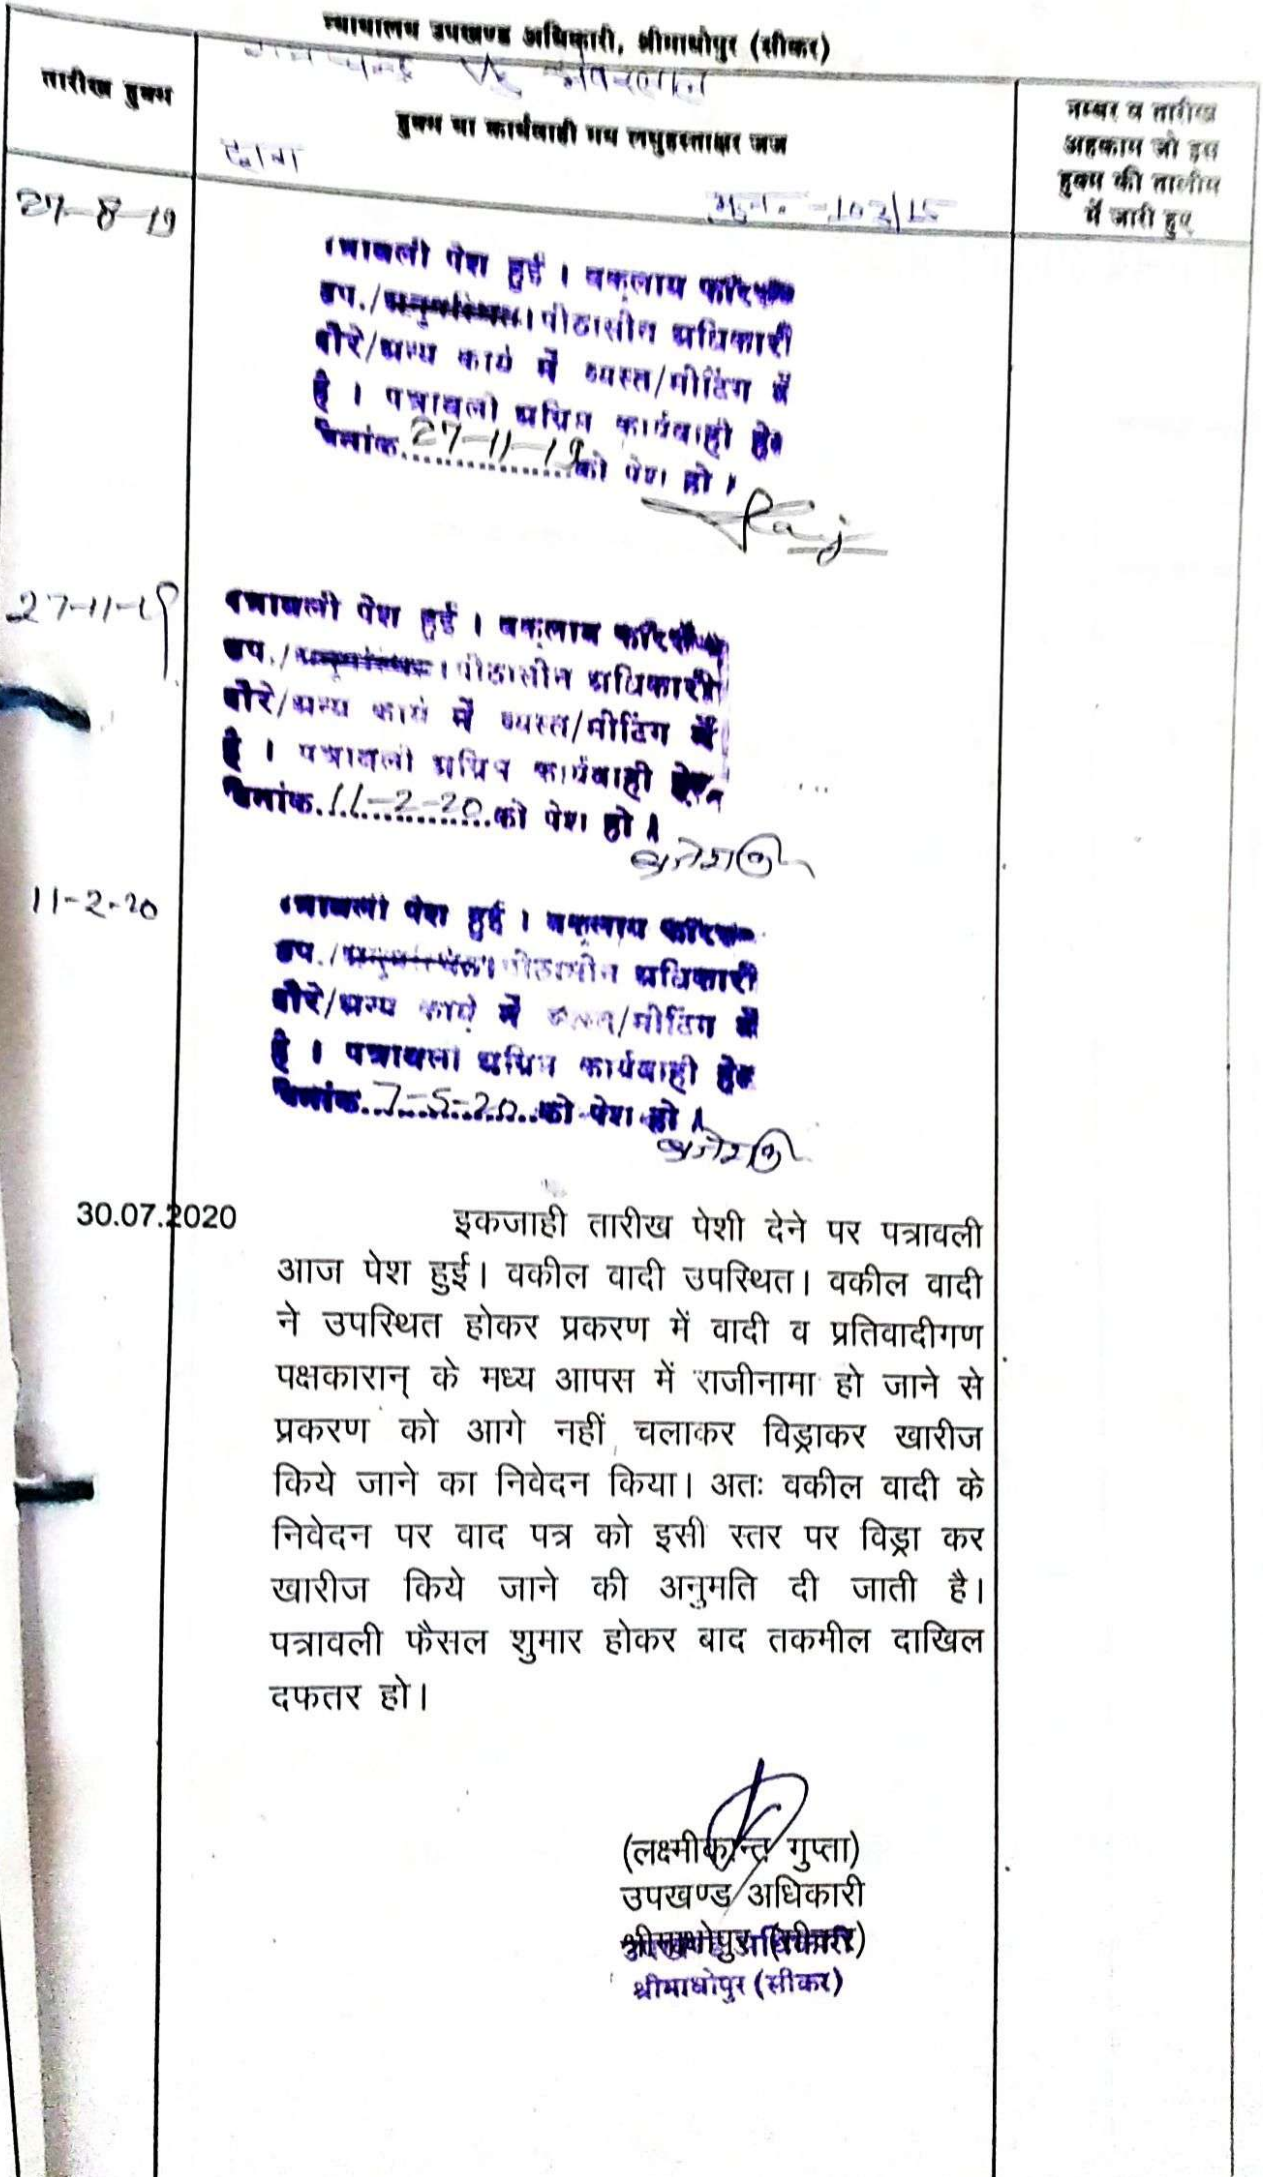 न्यायालय उपखण्ड अधिकारी, श्रीमाधोपुर (सीकर)
तारीख हुक्म
हुक्म या कार्यवाही मय लघुहस्ताक्षर जज
नम्बर व तारीख
अहकाम जो इस
हुक्म की तालीम
में जारी हुए
27-8-19
पत्रावली पेश हुई । वकलाय फरिकैन
उप./अनुपस्थित। पीठासीन अधिकारी
दौरे/अन्य कार्य में व्यस्त/मीटिंग में
है । पत्रावली अग्रिम कार्यवाही हेतु
दिनांक 27-11-19 को पेश हो ।
Raj
27-11-19
पत्रावली पेश हुई । वकलाय फरिकैन
उप./अनुपस्थित। पीठासीन अधिकारी
दौरे/अन्य कार्य में व्यस्त/मीटिंग में
है । पत्रावली अग्रिम कार्यवाही हेतु
दिनांक 11-2-20 को पेश हो ।
11-2-20
पत्रावली पेश हुई । वकलाय फरिकैन
उप./अनुपस्थित। पीठासीन अधिकारी
दौरे/अन्य कार्य में व्यस्त/मीटिंग में
है । पत्रावली अग्रिम कार्यवाही हेतु
दिनांक 7-5-20 को पेश हो ।
30.07.2020
इकजाही तारीख पेशी देने पर पत्रावली
आज पेश हुई। वकील वादी उपस्थित। वकील वादी
ने उपस्थित होकर प्रकरण में वादी व प्रतिवादीगण
पक्षकारान् के मध्य आपस में राजीनामा हो जाने से
प्रकरण को आगे नहीं चलाकर विड्राकर खारीज
किये जाने का निवेदन किया। अतः वकील वादी के
निवेदन पर वाद पत्र को इसी स्तर पर विड्रा कर
खारीज किये जाने की अनुमति दी जाती है।
पत्रावली फैसल शुमार होकर बाद तकमील दाखिल
दफतर हो।
(लक्ष्मीकान्त गुप्ता)
उपखण्ड अधिकारी
श्रीमाधोपुर (सीकर)
उपखण्ड अधिकारी
श्रीमाधोपुर (सीकर)